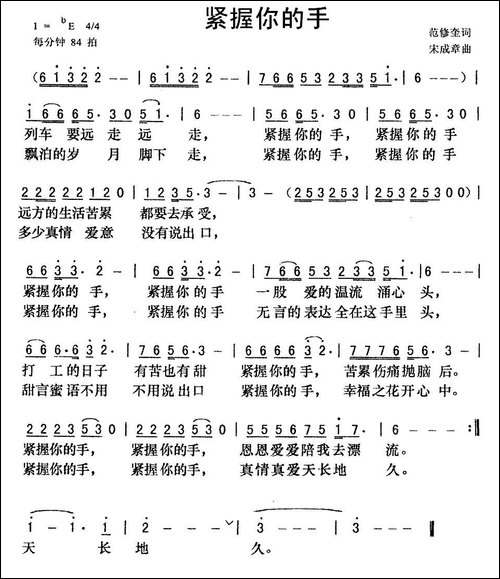 紧握你的手
1=ᵇE 4/4
每分钟 84 拍
范修奎词
宋成章曲
(6 1 3 2 2 — | 6 1 3 2 2 — | 7 6 6 5 3 2 3 3 5 1· | 6 — — —) |
1 6 6 6 5· 3 0 5 1 | 6 — — — | 6 6 6 5· 3 0 | 6 6 6 5· 3 0 |
列车 要远 走 远 走, 紧握你的 手, 紧握你的 手
飘泊的岁 月 脚下 走, 紧握你的 手, 紧握你的 手
2 2 2 2 2 1 2 0 | 1 2 3 5· 3 — | 3 — (2 5 3 2 5 3 | 2 5 3 2 5 3 2 5 3 0 0) |
远方的生活苦累 都要去承 受,
多少真情 爱意 没有说出口,
6 6 3 3· 2 — | 6 6 3 3· 2 — | 7 6 6 5 3 2 3 3 5 1· | 6 — — — |
紧握你的 手, 紧握你的 手 一股 爱的温流 涌心 头,
紧握你的 手, 紧握你的 手 无言的表达 全在这手里 头,
6 6 6· 6 3 2 | 5 6 5 6· 3 — | 6 6 6 6 3 2 | 7 7 7 7 6 5 6· 3 — |
打 工的日子 有苦也有甜 紧握你的 手, 苦累伤痛抛脑 后。
甜言蜜语不用 不用说出口 紧握你的 手, 幸福之花开心 中。
2 2 2 3 0 5 3 | 2 2 2 3 0 5 3 | 5 5 5 6 7 5 1 7· | 6 — — — :‖
紧握你的 手, 紧握你的 手, 恩恩爱爱陪我去漂 流。
紧握你的 手, 紧握你的 手, 真情真爱天长地 久。
1 — 1· 1 | 2 — — — ∨ | 3 — — — | 3 — — — ‖
天 长 地 久。